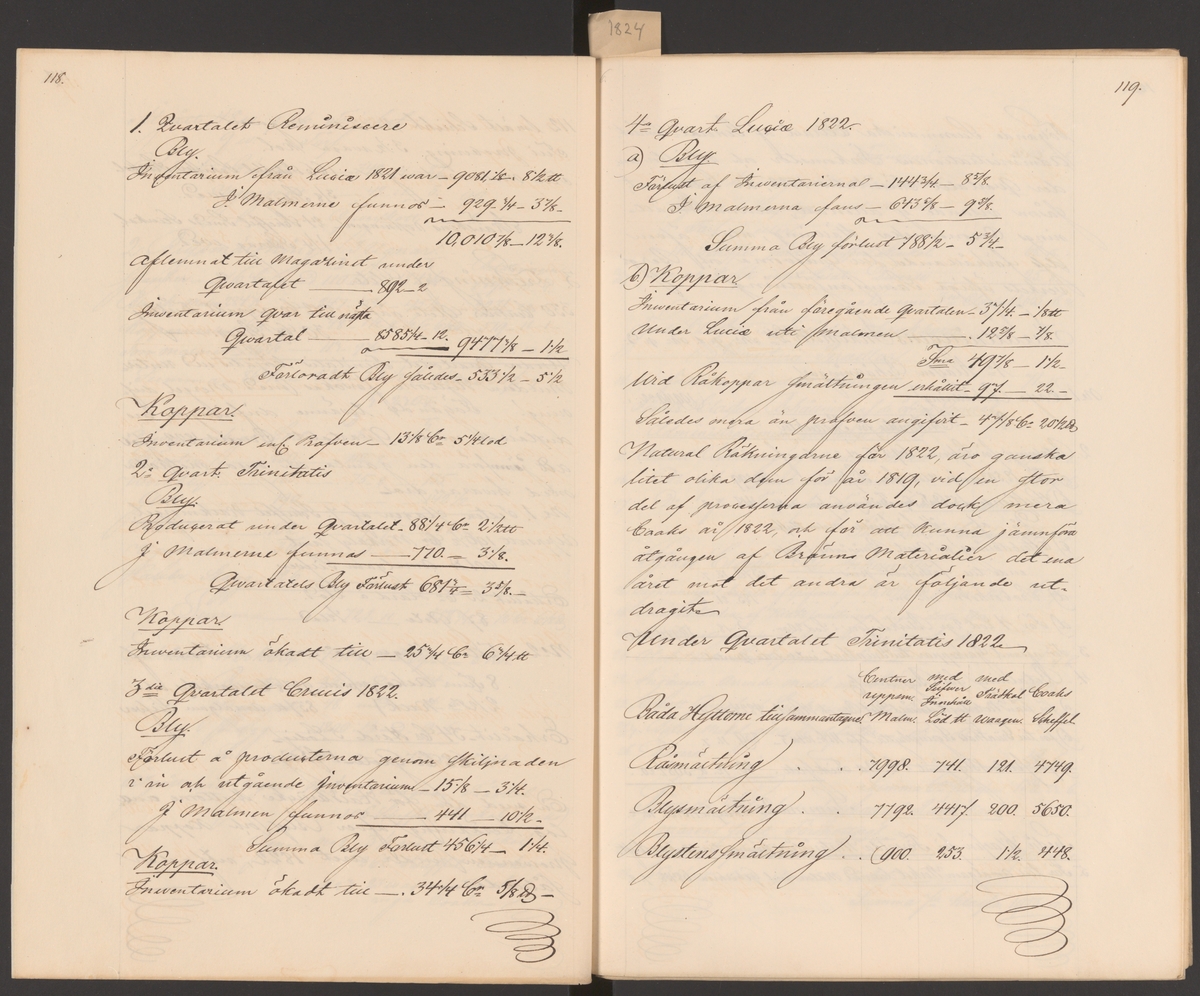 1824
118.
1. Qvartalet Reminiscere
Bly.
Inventarium från Luciæ 1821 war – 9081 7/8. 8 1/2 tt
I Malmerne funnos – 929 1/4 – 3 7/8 –
10,010 7/8 – 12 3/8.
Aflemnat till Magazinet under
Qvartalet — 892 – 2
Inventarium qvar till nästa
Qvartal — 8585 1/4 – 12. 9477 1/8 – 1 1/2
Förloradt Bly således – 533 1/2 – 5 1/2
Koppar.
Inventarium enl. Profven – 13 1/8 Cr 5 1/4 lod
2a Qvart. Trinitatis
Bly.
Producerat under Qvartalet – 88 1/4 Cr 2 1/2 tt
I Malmerne funnos — 770. – 3 1/8.
Qvartalets Bly Förlust 681 3/4 – 3 5/8. –
Koppar
Inventarium ökadt till — 25 3/4 Cr 6 3/4 tt
3die Qvartalet Crucis 1822.
Bly.
Förlust å producterna genom skiljnaden
i in och utgående Inventarium – 15 1/8 – 3 1/4.
I Malmen funnos — 441 — 10 1/2 –
Summa Bly Förlust 456 1/4 – 1 1/4.
Koppar.
Inventarium ökadt till —. 34 1/4 Cr 5/8 tt –
119.
4de Qvart. Luciæ 1822.
a) Bly.
Förlust af Inventarierna – 144 3/4 – 8 5/8.
I Malmerna fans – 643 5/8 – 9 5/8.
Summa Bly förlust 788 1/2 – 5 3/4 –
b) Koppar.
Inventarium från föregående Qvartalen – 37 1/4. – 1/8 tt
Under Luciæ uti malmen —. 12 5/8 – 7/8.
Sma 49 7/8 – 1 1/2 –
Vid Råkoppar smältningen erhållit – 97. – 22. –
Således mera än profven angifvit – 47 1/8 Cr 20 1/2 tt
Natural Räkningarne för 1822, äro ganska
litet olika dem för år 1819, vid en stor
del af processerna användes dock mera
Coaks år 1822, och för att kunna jämnföra
åtgången af Bränns Materialier det ena
året mot det andra är följande ut-
dragit
Under Qvartalet Trinitatis 1822
Centner uppsm. Malm. med Silfver Innehåll Löd tt med Träkol waagen. Coaks Scheffel
Båda Hyttorne tillsammantagne
Råsmältning . . . 7998. 741. 121. 4749.
Blysmältning . . 7792. 4417. 200. 5650.
Blystenssmältning . . 900. 253. 1 1/2. 448.